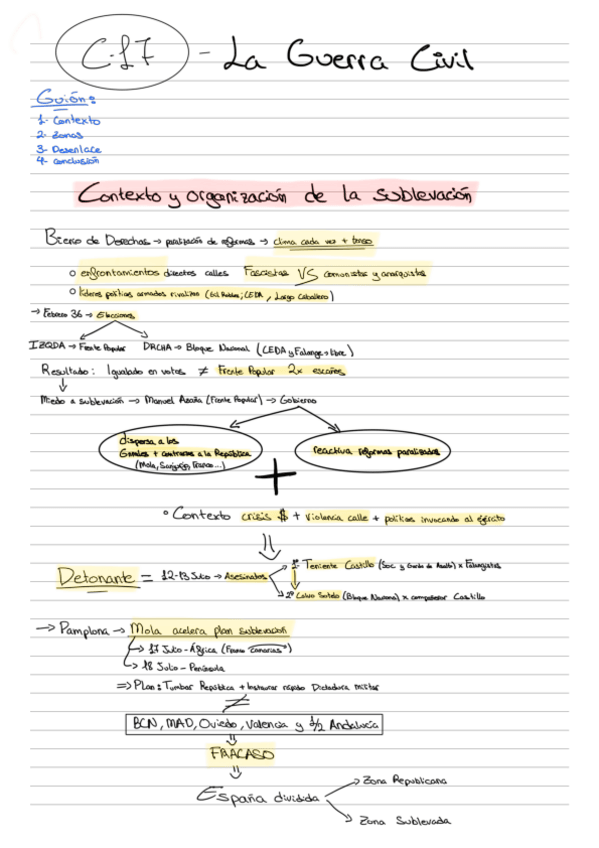 C.17 - La Guerra Civil
Guión:
1- Contexto
2- Zonas
3- Desenlace
4- Conclusión
Contexto y organización de la sublevación
Bienio de Derechas → paralización de reformas → clima cada vez + tenso
enfrontamientos directos calles Fascistas VS comunistas y anarquistas
líderes políticos armados rivalizan (Gil Robles; CEDA, Largo Caballero)
→ Febrero 36 → Elecciones
IZQDA → Frente Popular DRCHA → Bloque Nacional (CEDA y Falange → libre)
Resultado: Igualado en votos ≠ Frente Popular 2x escaños
Miedo a sublevación → Manuel Azaña (Frente Popular) → Gobierno
dispersa a los
Grales + contrarios a la República
(Mola, Sanjurjo, Franco...)
reactiva reformas paralizadas
+
Contexto crisis $ + violencia calle + políticos invocando al ejército
Detonante = 12-13 Julio → Asesinatos
1º Teniente Castillo (Soc. y Guardia de Asalto) x Falangistas
2º Calvo Sotelo (Bloque Nacional) x compañeros Castillo
→ Pamplona → Mola acelera plan sublevación
→ 17 Julio - África (Franco "Canarias")
→ 18 Julio - Península
⇒ Plan: Tumbar República + Instaurar rápido Dictadura militar
≠
BCN, MAD, Oviedo, Valencia y 1/2 Andalucía
FRACASO
España dividida
Zona Republicana
Zona Sublevada